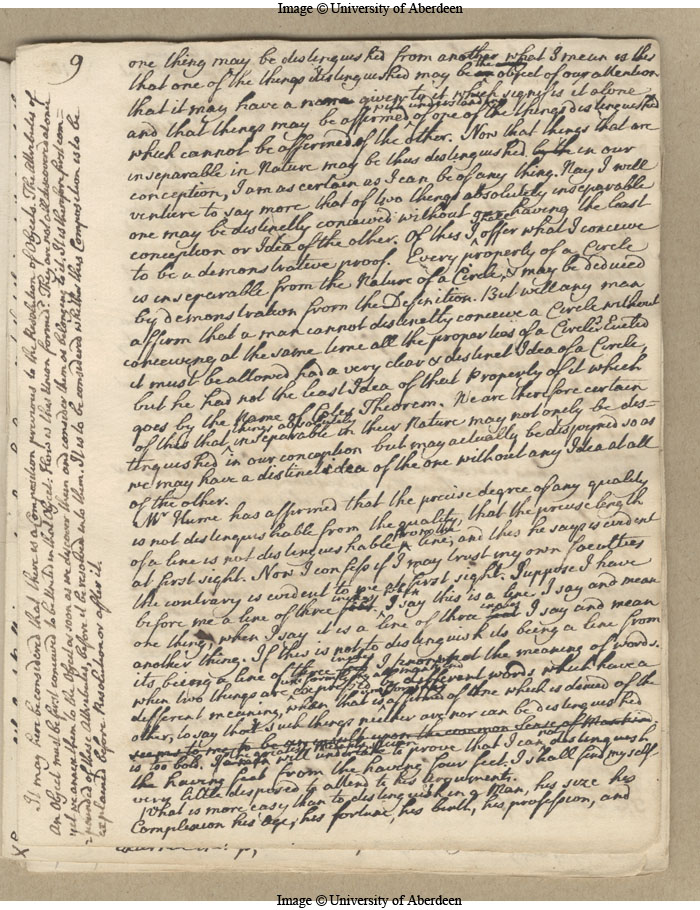 Image © University of Aberdeen
9
one thing may be distinguished from another what I mean is this
that one of the things distinguished may be an object of our attention
that it may have a name given to it which signifies it alone
and that things may be affirmed with understanding of one of the things distinguished
which cannot be affirmed of the other. Now that things that are
inseparable in Nature may be thus distinguished in our
conception, I am as certain as I can be of any thing. Nay I will
venture to say more that of two things absolutely inseparable
one may be distinctly conceived without having the least
conception or Idea of the other. Of this I offer what I conceive
to be a demonstrative proof. Every property of a Circle
is inseparable from the Nature of a Circle, & may be deduced
by demonstration from the Definition. But will any man
affirm that a man cannot distinctly conceive a Circle without
conceiving at the same time all the properties of a Circle. Euclid
it must be allowed had a very clear & distinct Idea of a Circle,
but he had not the least Idea of that Property of it which
goes by the Name of Cotes Theorem. We are therefore certain
of this that things absolutely inseparable in their Nature may not onely be dis-
tinguished in our conception but may actually be disjoyned so as
we may have a distinct idea of the one without any Idea at all
of the other.
Mr Hume has affirmed that the precise degree of any quality
is not distinguishable from the quality, that the precise length
of a line is not distinguishable from the line; and this he says is evident
at first sight. Now I confess if I may trust my own faculties
the contrary is evident to me at first sight. Suppose I have
before me a line of three inches I say this is a line. I say and mean
one thing, when I say it is a line of three inches I say and mean
another thing. If this is not to distinguish its being a line from
its being a line of three inches I know not the meaning of words.
when two things are expressed by different words which have a
different meaning, when that is affirmed of one which is denied of the
other, to say that such things neither are nor can be distinguished
seems to me to be upon the common sense of Mankind.
is too bold. If a man will undertake to prove that I cannot distinguish
the having feet from the having four feet. I shall find myself
very little disposed to attend to his arguments.
What is more easy than to distinguish in a Man, his size his
Complexion his Age, his fortune, his birth, his profession, and
It may here be considered that there is a Composition previous to the Resolution of Objects. The Attributes of
an Object must be first conceived to be United in that Object. How is this Union formed? They are not all discovered at once
yet we annex them to the Object as soon as we discover them and consider them as belonging to it. It is therefore first com-
pounded of these Attributes, before it be resolved into them. It is to be considered whether this Composition is to be
explained before Resolution or after it.
X
Image © University of Aberdeen